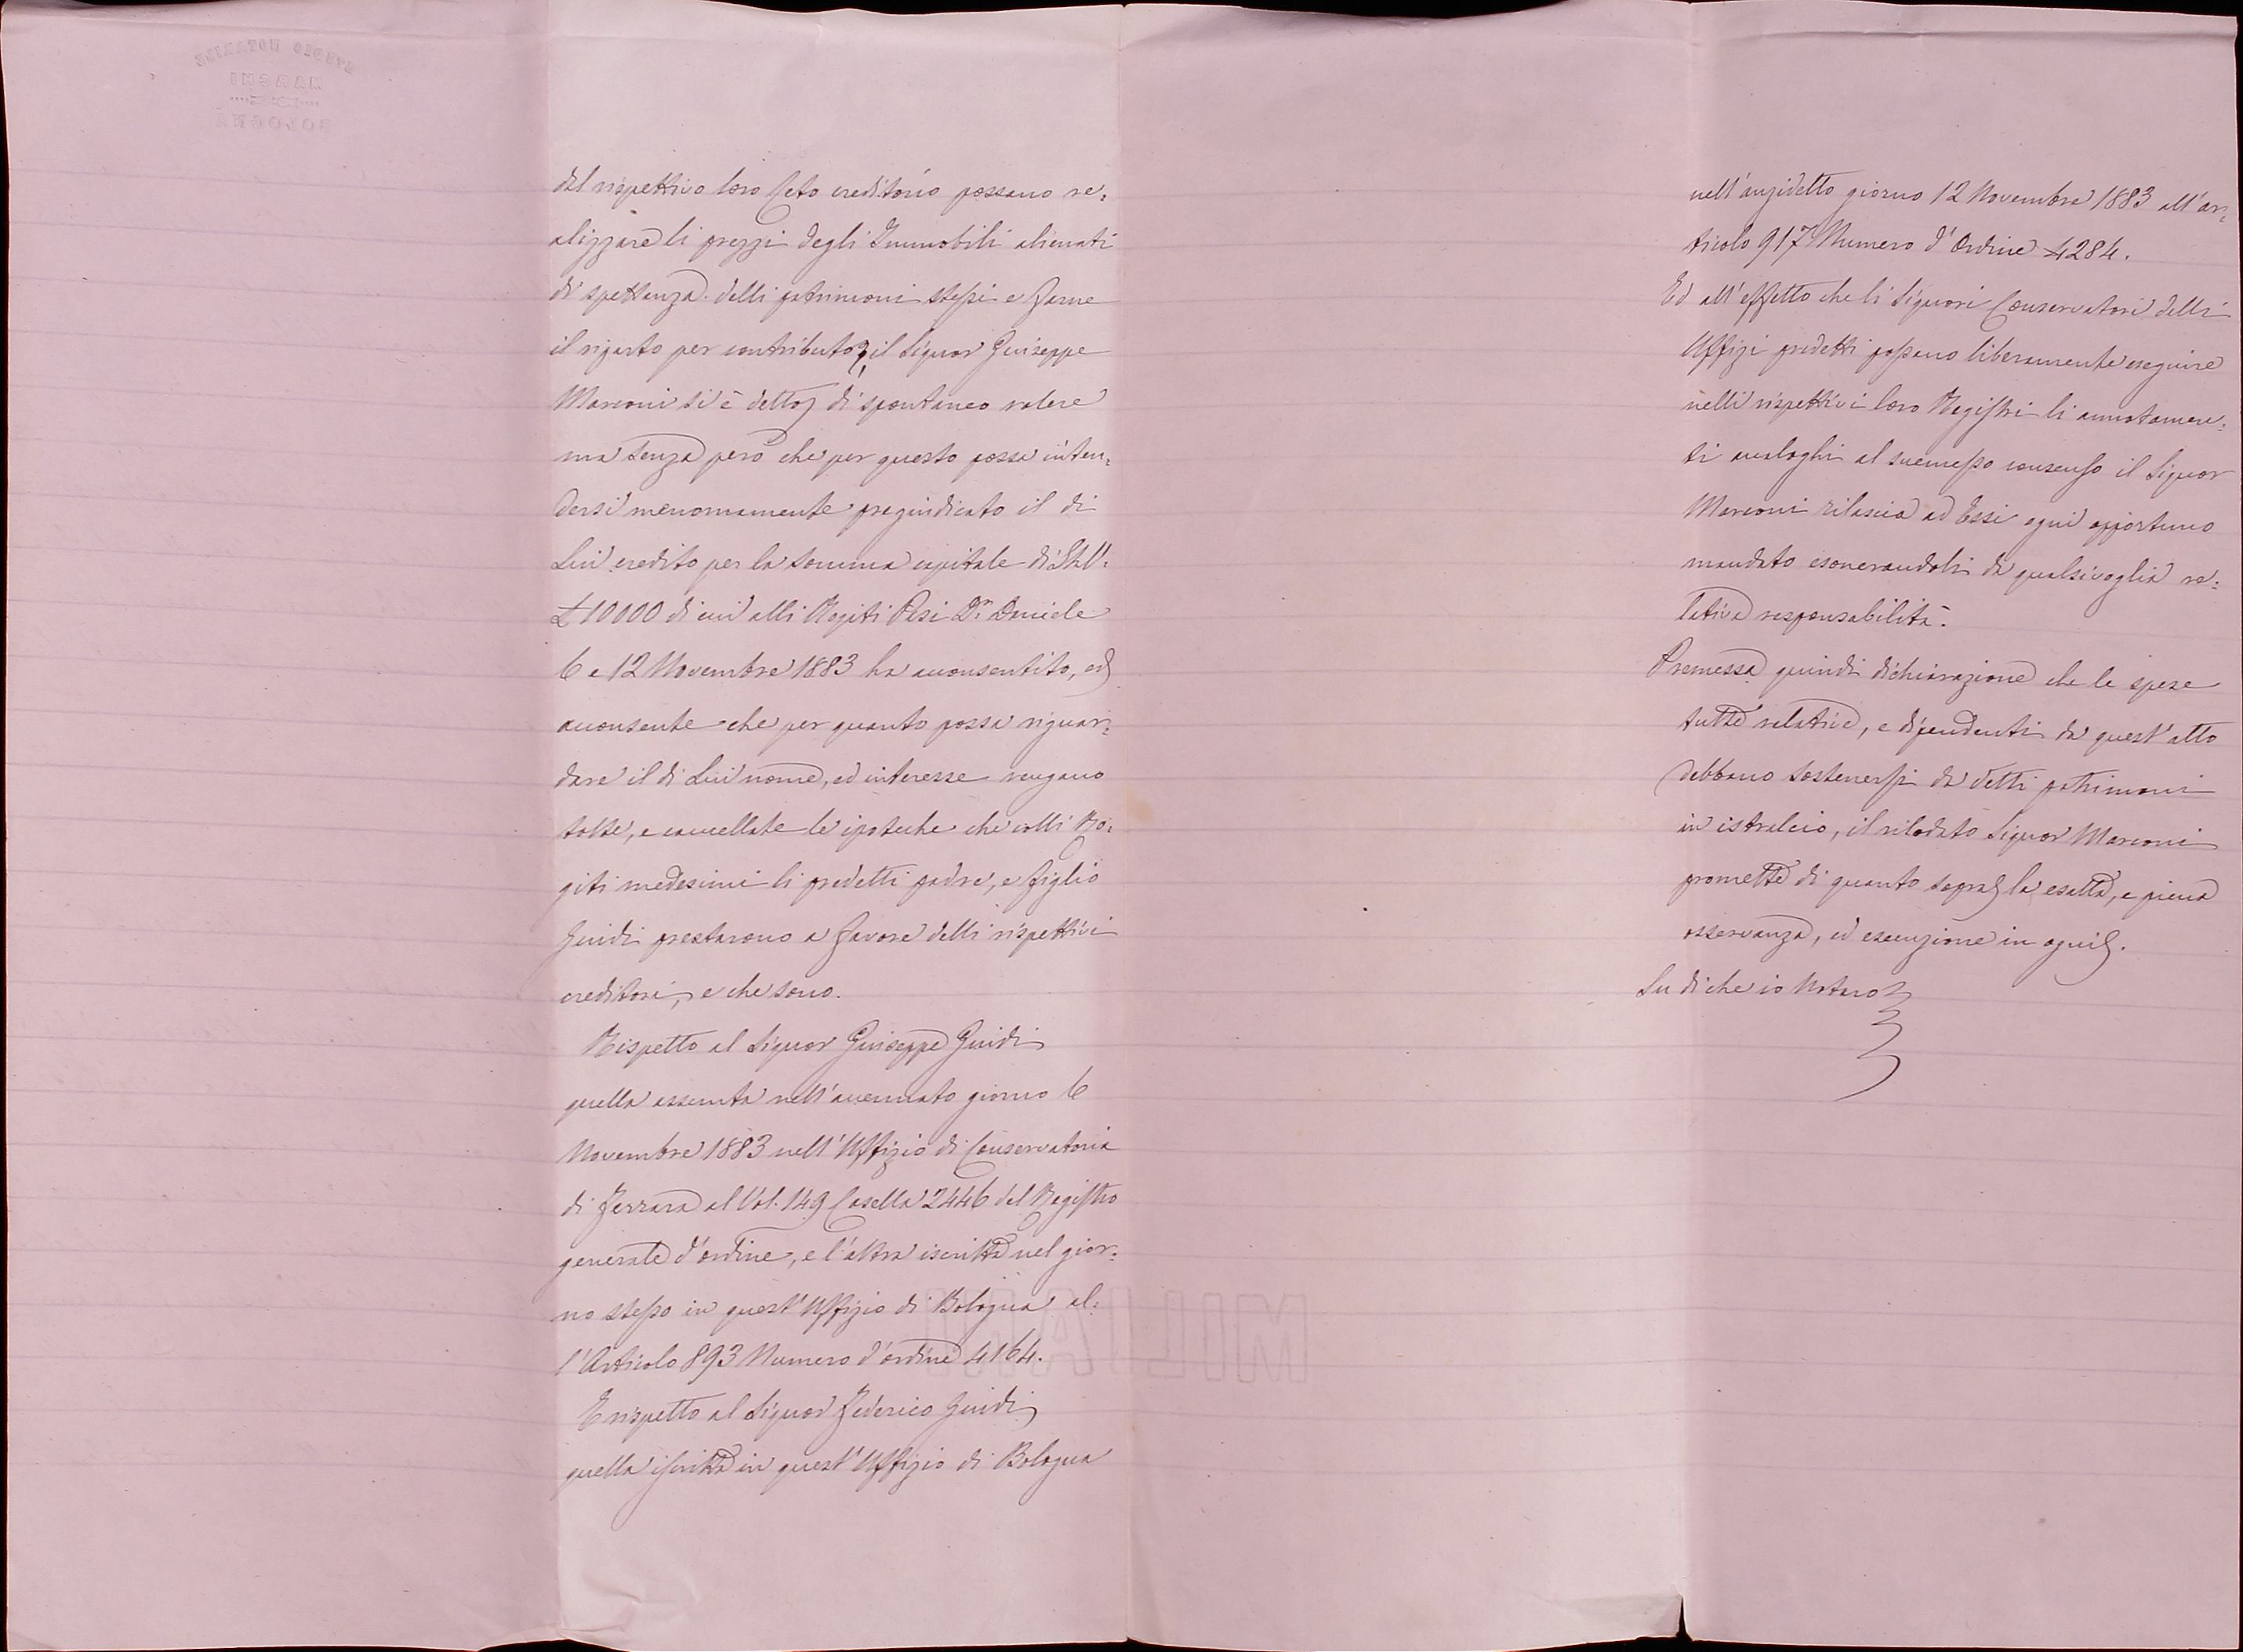 STUDIO NOTARILE
MARANI
BOLOGNA
del rispettivo loro Ceto creditorio possano re=
alizzare li prezzi degli Immobili alienati
di spettanza delli patrimoni stessi e farne
il riparto per contributo, il Signor Guiseppe
Marconi si è detto, di spontaneo volere
ma senza però che per questo possa inten=
dersi menomamente pregiudicato il di
Lui credito per la somma capitale di It. L.
£ 10000 di cui alli Rogiti Pesi Dr. Daniele
6 e 12 Novembre 1883 ha acconsentito, ed
acconsente che per quanto possa riguar=
dare il di Lui nome, ed interesse vengano
tolte, e cancellate le ipoteche che colli Ro=
giti medesimi li predetti padre, e figlio
Guidi prestarono a favore delli rispettivi
creditori, e che sono.
Rispetto al Signor Guiseppe Guidi
quella assunta nell'accennato giorno 6
Novembre 1883 nell'Uffizio di Conservatoria
di Ferrara al Vol. 149 Casella 2446 del Registro
generale d'ordine, e l'altra iscritta nel gior=
no stesso in quest'Uffizio di Bologna al=
l'Articolo 893 Numero d'ordine 4164.
E rispetto al Signor Federico Guidi
quella iscritta in quest'Uffizio di Bologna
nell'anzidetto giorno 12 Novembre 1883 all'ar=
ticolo 917 Numero d'Ordine 4284.
Ed all'effetto che li Signori Conservatori delli
Uffizi predetti possano liberamente eseguire
nelli rispettivi loro Registri li annotamen=
ti analoghi al suemesso consenso il Signor
Marconi rilascia ad Essi ogni opportuno
mandato esonerandoli da qualsivoglia re=
lativa responsabilità.
Premessa quindi dichiarazione che le spese
tutte relative, e dipendenti da quest'atto
debbano sostenersi da detti patrimoni
in istralcio, il rilodato Signor Marconi
promette di quanto sopra la esatta, e piena
osservanza, ed esecuzione in ogni.
Su di che io Notaro